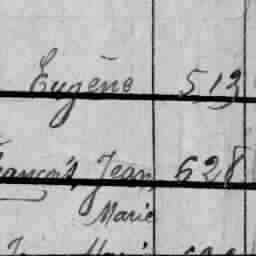 Eugène 513
François Jean 628
Marie